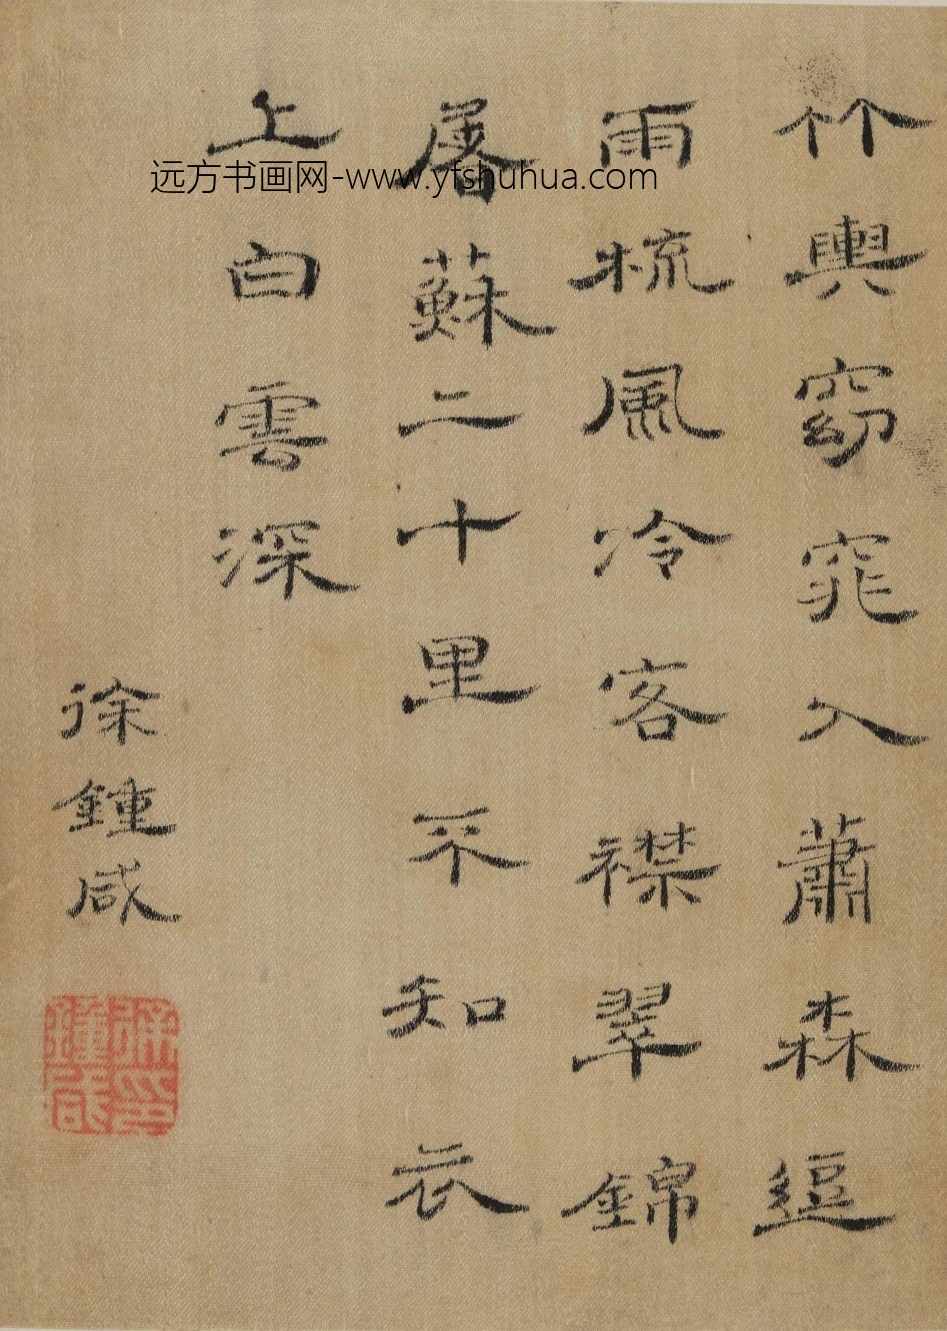 竹輿窈窕入蕭森逗
雨梳風冷客襟翠錦
屠蘇二十里不知衣
上白雲深
徐鍾咸
徐印鍾咸
远方书画网-www.yfshuhua.com